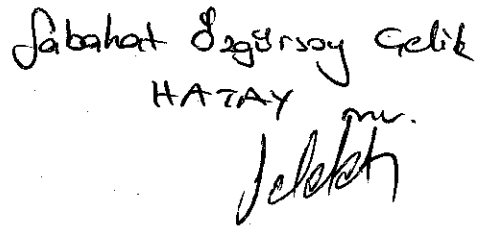 Sabahat Özgürsoy Çelik
HATAY mv.